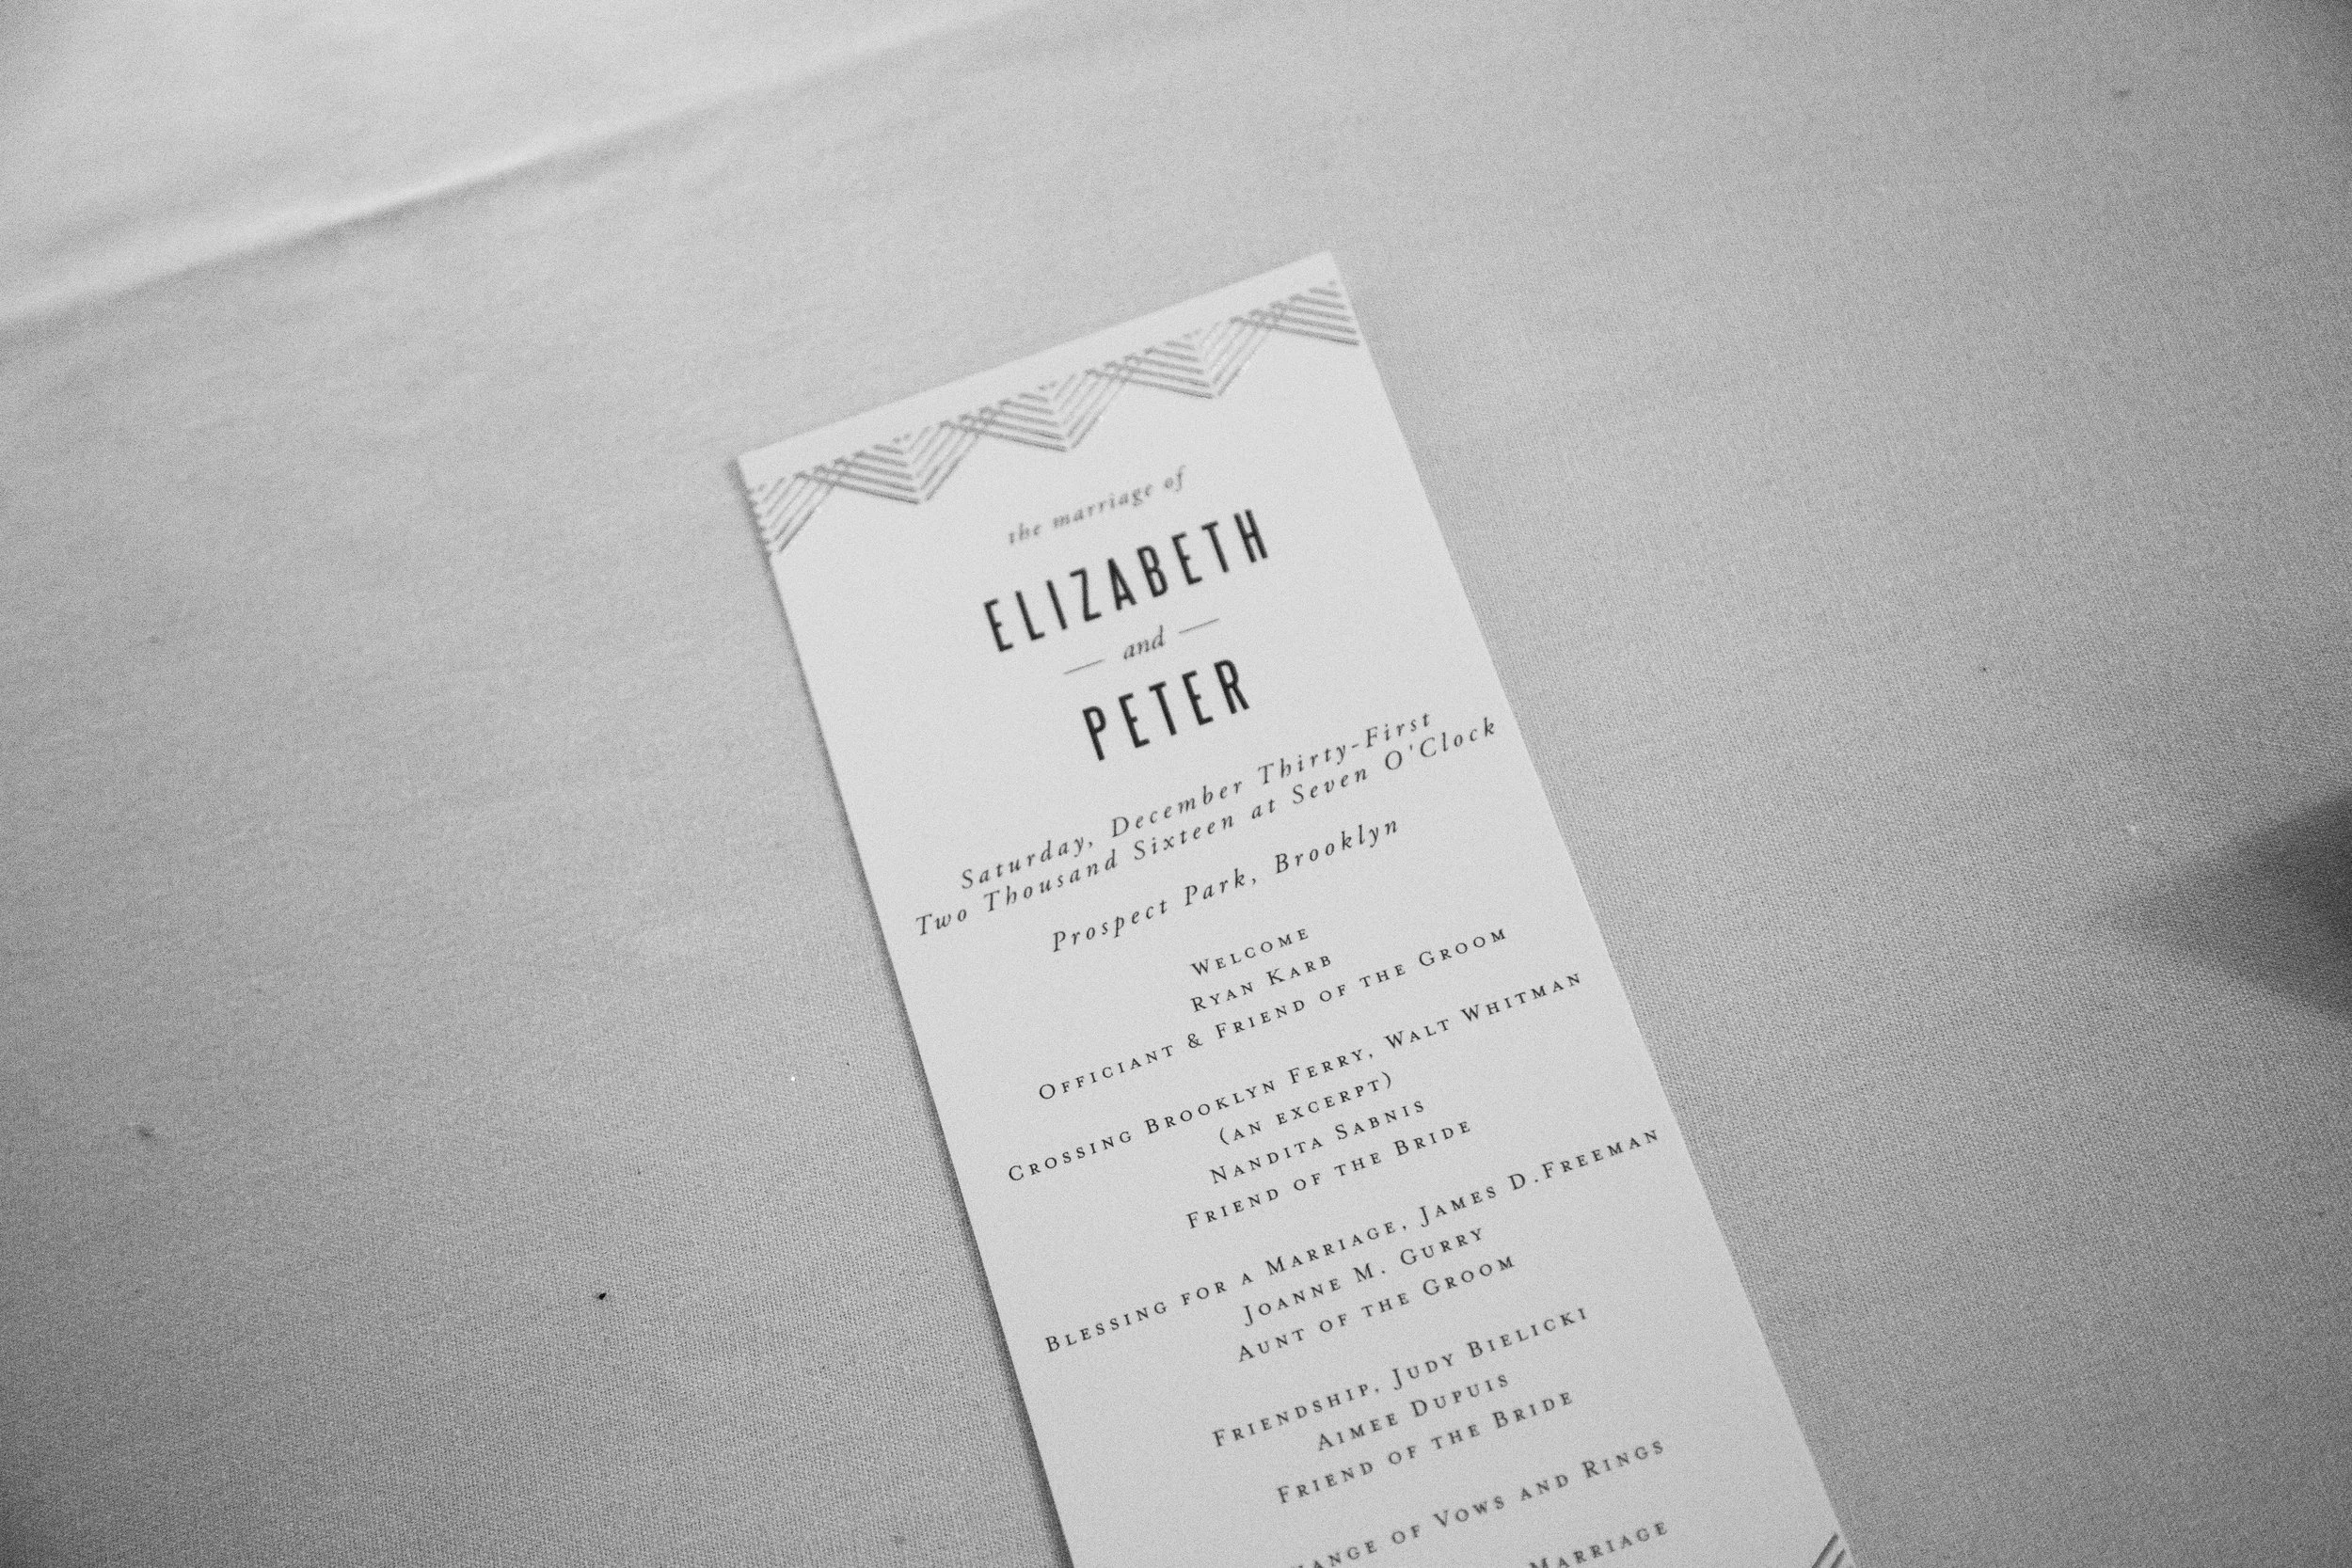 the marriage of
ELIZABETH
— and —
PETER
Saturday, December Thirty-First
Two Thousand Sixteen at Seven O'Clock
Prospect Park, Brooklyn
WELCOME
RYAN KARB
OFFICIANT & FRIEND OF THE GROOM
CROSSING BROOKLYN FERRY, WALT WHITMAN
(AN EXCERPT)
NANDITA SABNIS
FRIEND OF THE BRIDE
BLESSING FOR A MARRIAGE, JAMES D.FREEMAN
JOANNE M. GURRY
AUNT OF THE GROOM
FRIENDSHIP, JUDY BIELICKI
AIMEE DUPUIS
FRIEND OF THE BRIDE
OF VOWS AND RINGS
MARRIAGE